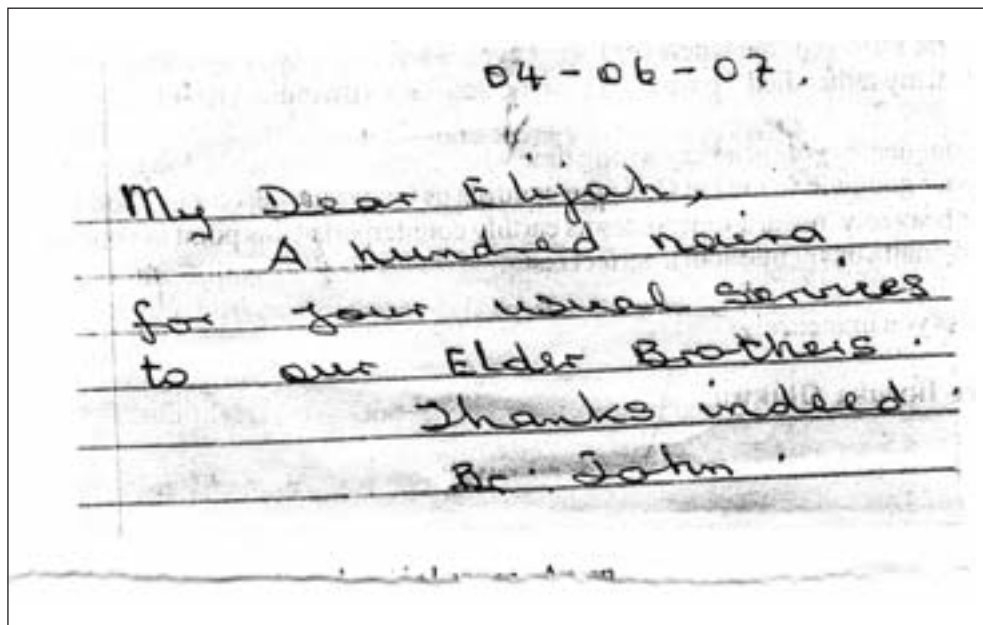 04-06-07.
My Dear Elijah,
A hundred naira
for your usual services
to our Elder Brothers.
Thanks indeed
Br. John.